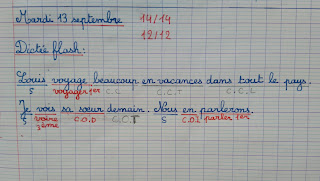 Mardi 13 septembre 14/14
12/12
Dictée flash :
Louis voyage beaucoup en vacances dans tout le pays.
S voyager 1er C.C C.C.T C.C.L
Je vois sa sœur demain. Nous en parlerons.
S voire C.O.D C.C.T S C.O.I parler 1er
3ème